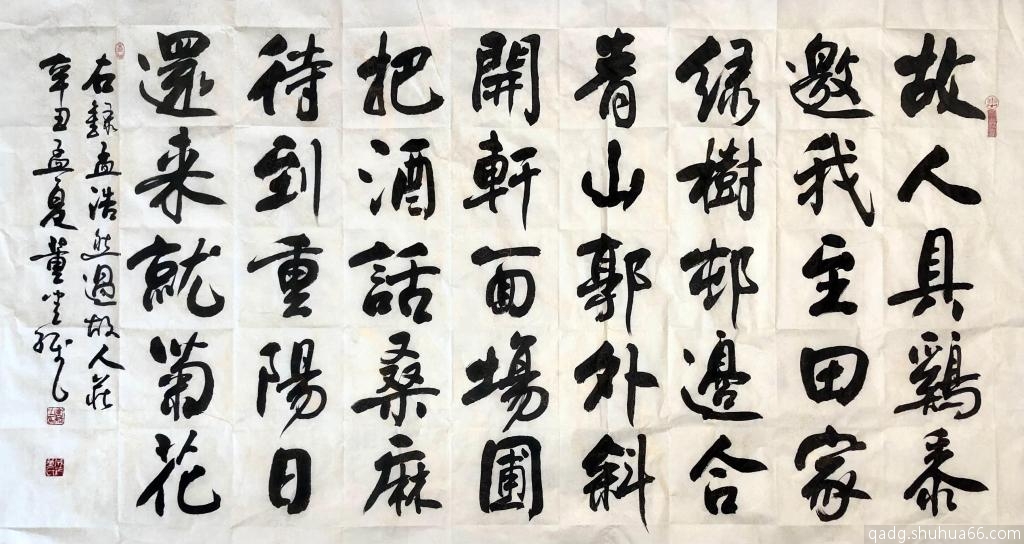 故人具鷄黍
邀我至田家
緑樹邨邊合
青山郭外斜
開軒面場圃
把酒話桑麻
待到重陽日
還来就菊花
右録孟浩然過故人莊
辛丑孟夏董
qadg.shuhua66.com